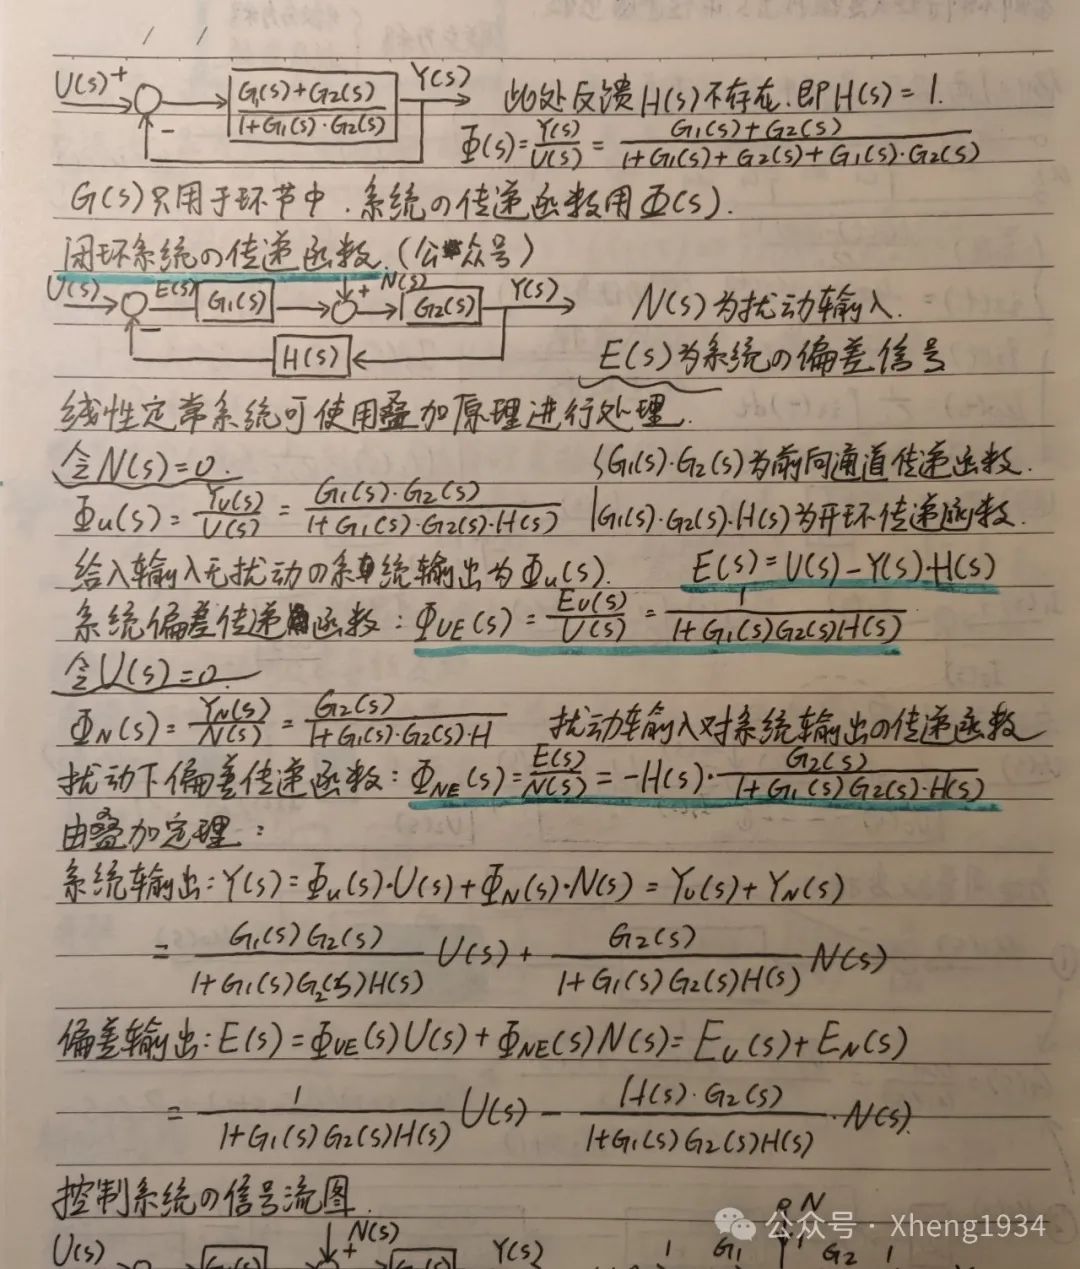 U(s) + − (G1(s)+G2(s))/(1+G1(s)·G2(s)) Y(s) 此处反馈H(s)不存在.即H(s)=1.
Φ(s)=Y(s)/U(s)=(G1(s)+G2(s))/(1+G1(s)+G2(s)+G1(s)·G2(s))
G(s)只用于环节中.系统の传递函数用Φ(s).
闭环系统の传递函数.(公众号)
U(s) − E(s) G1(s) + N(s) G2(s) Y(s) N(s)为扰动输入.
H(s) E(s)为系统の偏差信号
线性定常系统可使用叠加原理进行处理.
令N(s)=0. G1(s)·G2(s)为前向通道传递函数.
Φu(s)=YU(s)/U(s)=(G1(s)·G2(s))/(1+G1(s)·G2(s)·H(s)) G1(s)·G2(s)·H(s)为开环传递函数.
给入输入无扰动の系统输出为Φu(s). E(s)=U(s)−Y(s)·H(s)
系统偏差传递函数:ΦUE(s)=EU(s)/U(s)=1/(1+G1(s)G2(s)H(s))
令U(s)=0.
ΦN(s)=YN(s)/N(s)=G2(s)/(1+G1(s)·G2(s)·H) 扰动输入对系统输出の传递函数
扰动下偏差传递函数:ΦNE(s)=E(s)/N(s)=−H(s)·G2(s)/(1+G1(s)G2(s)·H(s))
由叠加定理:
系统输出:Y(s)=Φu(s)·U(s)+ΦN(s)·N(s)=YU(s)+YN(s)
=(G1(s)G2(s))/(1+G1(s)G2(s)H(s)) U(s)+G2(s)/(1+G1(s)G2(s)H(s)) N(s)
偏差输出:E(s)=ΦUE(s)U(s)+ΦNE(s)N(s)=EU(s)+EN(s)
=1/(1+G1(s)G2(s)H(s)) U(s)−(H(s)·G2(s))/(1+G1(s)G2(s)H(s))·N(s).
控制系统の信号流图.
N
公众号·Xheng1934
U(s) G1(s) N(s) + G2(s) Y(s) 1 G1 1 G2 1